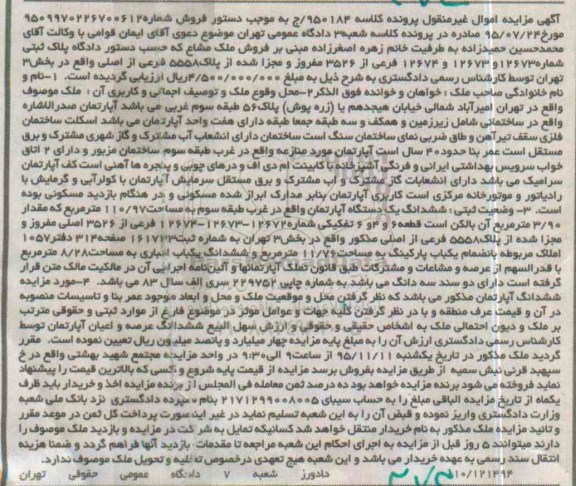 آگهی مزایده اموال غیرمنقول پرونده کلاسه ۹۵۰۱۸۴/ج به موجب دستور فروش شماره۹۵۰۹۹۷۰۲۲۶۷۰۰۶۱۲
مورخ۹۵/۰۷/۲۴ صادره در پرونده کلاسه شعبه۳ دادگاه عمومی تهران موضوع دعوی آقای ایمان قوامی با وکالت آقای
محمدحسین حمیدزاده به طرفیت خانم زهره اصغرزاده مبنی بر فروش ملک مشاع که حسب دستور دادگاه پلاک ثبتی
شماره۱۲۶۷۲و ۱۲۶۷۳ و ۱۲۶۷۴ فرعی از ۳۵۲۶ مفروز و مجزا شده از پلاک۵۵۵۸ فرعی از اصلی واقع در بخش۳
تهران توسط کارشناس رسمی دادگستری به شرح ذیل به مبلغ ۴/۵۰۰/۰۰۰/۰۰۰ریال ارزیابی گردیده است. ۱-نام و
نام خانوادگی صاحب ملک : خواهان و خوانده فوق الذکر۲-محل وقوع ملک و توصیف اجمالی و کاربری آن : ملک موصوف
واقع در تهران امیرآباد شمالی خیابان هیجدهم یا (زره پوش) پلاک۵۶ طبقه سوم غربی می باشد آپارتمان صدرالاشاره
واقع در ساختمانی شامل زیرزمین و همکف و سه طبقه جمعا طبقه دارای هفت واحد آپارتمان می باشد اسکلت ساختمان
فلزی سقف تیرآهن و طاق ضربی نمای ساختمان سنگ است ساختمان دارای انشعاب آب مشترک و گاز شهری مشترک و برق
مستقل است عمر بنا حدود۴۰ سال است آپارتمان مورد مزایده واقع در غرب طبقه سوم ساختمان مزبور و دارای ۲ اتاق
خواب سرویس بهداشتی ایرانی و فرنگی آشپزخانه با کابینت ام دی اف و درهای چوبی و پنجره ها آهنی است کف آپارتمان
سرامیک می باشد دارای انشعابات گاز مشترک و آب مشترک و برق مستقل سرمایش آپارتمان با کولرآبی و گرمایش با
رادیاتور و موتورخانه مرکزی است کاربری آپارتمان بنابر مدارک ابراز شده مسکونی و در هنگام بازدید مسکونی بوده
است. ۳- وضعیت ثبتی : ششدانگ یک دستگاه آپارتمان واقع در غرب طبقه سوم به مساحت۱۱۰/۹۷ مترمربع که مقدار
۳/۹۰ مترمربع آن بالکن است قطعه۶ و ۴و ۶ تفکیکی شماره۱۲۶۷۲-۱۲۶۷۳-۱۲۶۷۴ فرعی از ۳۵۲۶ اصلی مفروز و
مجزا شده از پلاک۵۵۵۸ فرعی از اصلی مذکور واقع در بخش۳ تهران به شماره ثبت۱۶۱۷۱۳ صفحه۳۱۴ دفتر۱۰۵۷
املاک مربوطه بانضمام یکباب پارکینگ به مساحت۱۱/۷۶ مترمربع و ششدانگ یکباب انباری به مساحت۸/۲۸ مترمربع
با قدرالسهم از عرصه و مشاعات و مشترکات طبق قانون تملک آپارتمانها و آئین‌نامه اجرایی آن در مالکیت مالک متن قرار
گرفته است دارای دو سند سه دانگ می باشد به شماره چاپی ۲۲۹۷۵۲ سری الف سال ۸۳ می باشد. ۴-مورد مزایده
ششدانگ آپارتمان مذکور می باشد که نظر گرفتن محل و موقعیت ملک و محل و ابعاد موجود عمر بنا و تاسیسات منصوبه
در آن و قیمت عرف منطقه و با در نظر گرفتن کلیه جهات و عوامل موثر در موضوع فارغ از موارد ثبتی و حقوقی مترتب
بر ملک و دیون احتمالی ملک به اشخاص حقیقی و حقوقی و ارزش سهل البیع ششدانگ عرصه و اعیان آپارتمان توسط
کارشناس رسمی دادگستری ارزش آن را به مبلغ پایه مزایده چهار میلیارد و پانصد میلیون ریال تعیین نموده است. مقرر
گردید ملک مذکور در تاریخ یکشنبه ۹۵/۱۱/۱۱ از ساعت۹ الی۹:۳۰ در واحد مزایده مجتمع شهید بهشتی واقع در خ
سپهبد قرنی نبش سمیه از طریق مزایده بفروش برسد مزایده از قیمت پایه شروع و کسی که بالاترین قیمت را پیشنهاد
نماید فروخته می شود برنده مزایده خواهد بود ده درصد ثمن معامله فی المجلس از برنده مزایده اخذ و خریدار باید ظرف
یکماه از تاریخ مزایده الباقی مبلغ را به حساب سیبای ۲۱۷۱۲۹۹۰۰۸۰۰۵ بنام سپرده دادگستری نزد بانک ملی شعبه
وزارت دادگستری واریز نموده و قبض آن را به این شعبه تسلیم نماید در غیر اینصورت پرداخت کل ثمن در موعد مقرر
و تائید مزایده ملک مذکور به نام خریدار منتقل خواهد شد کسانیکه تمایل به شرکت در مزایده و بازدید ملک موصوف را
دارند میتوانند ۵ روز قبل از مزایده به اجرای احکام این شعبه مراجعه تا مقدمات بازدید آنها فراهم گردد و ضمنا هزینه
انتقال سند رسمی به عهده خریدار می باشد و این شعبه هیچ تعهدی درخصوص تخلیه و تحویل ملک موصوف ندارد.
۱۱۰/۱۲۱۴۹۴ دادورز شعبه ۷ دادگاه عمومی حقوقی تهران